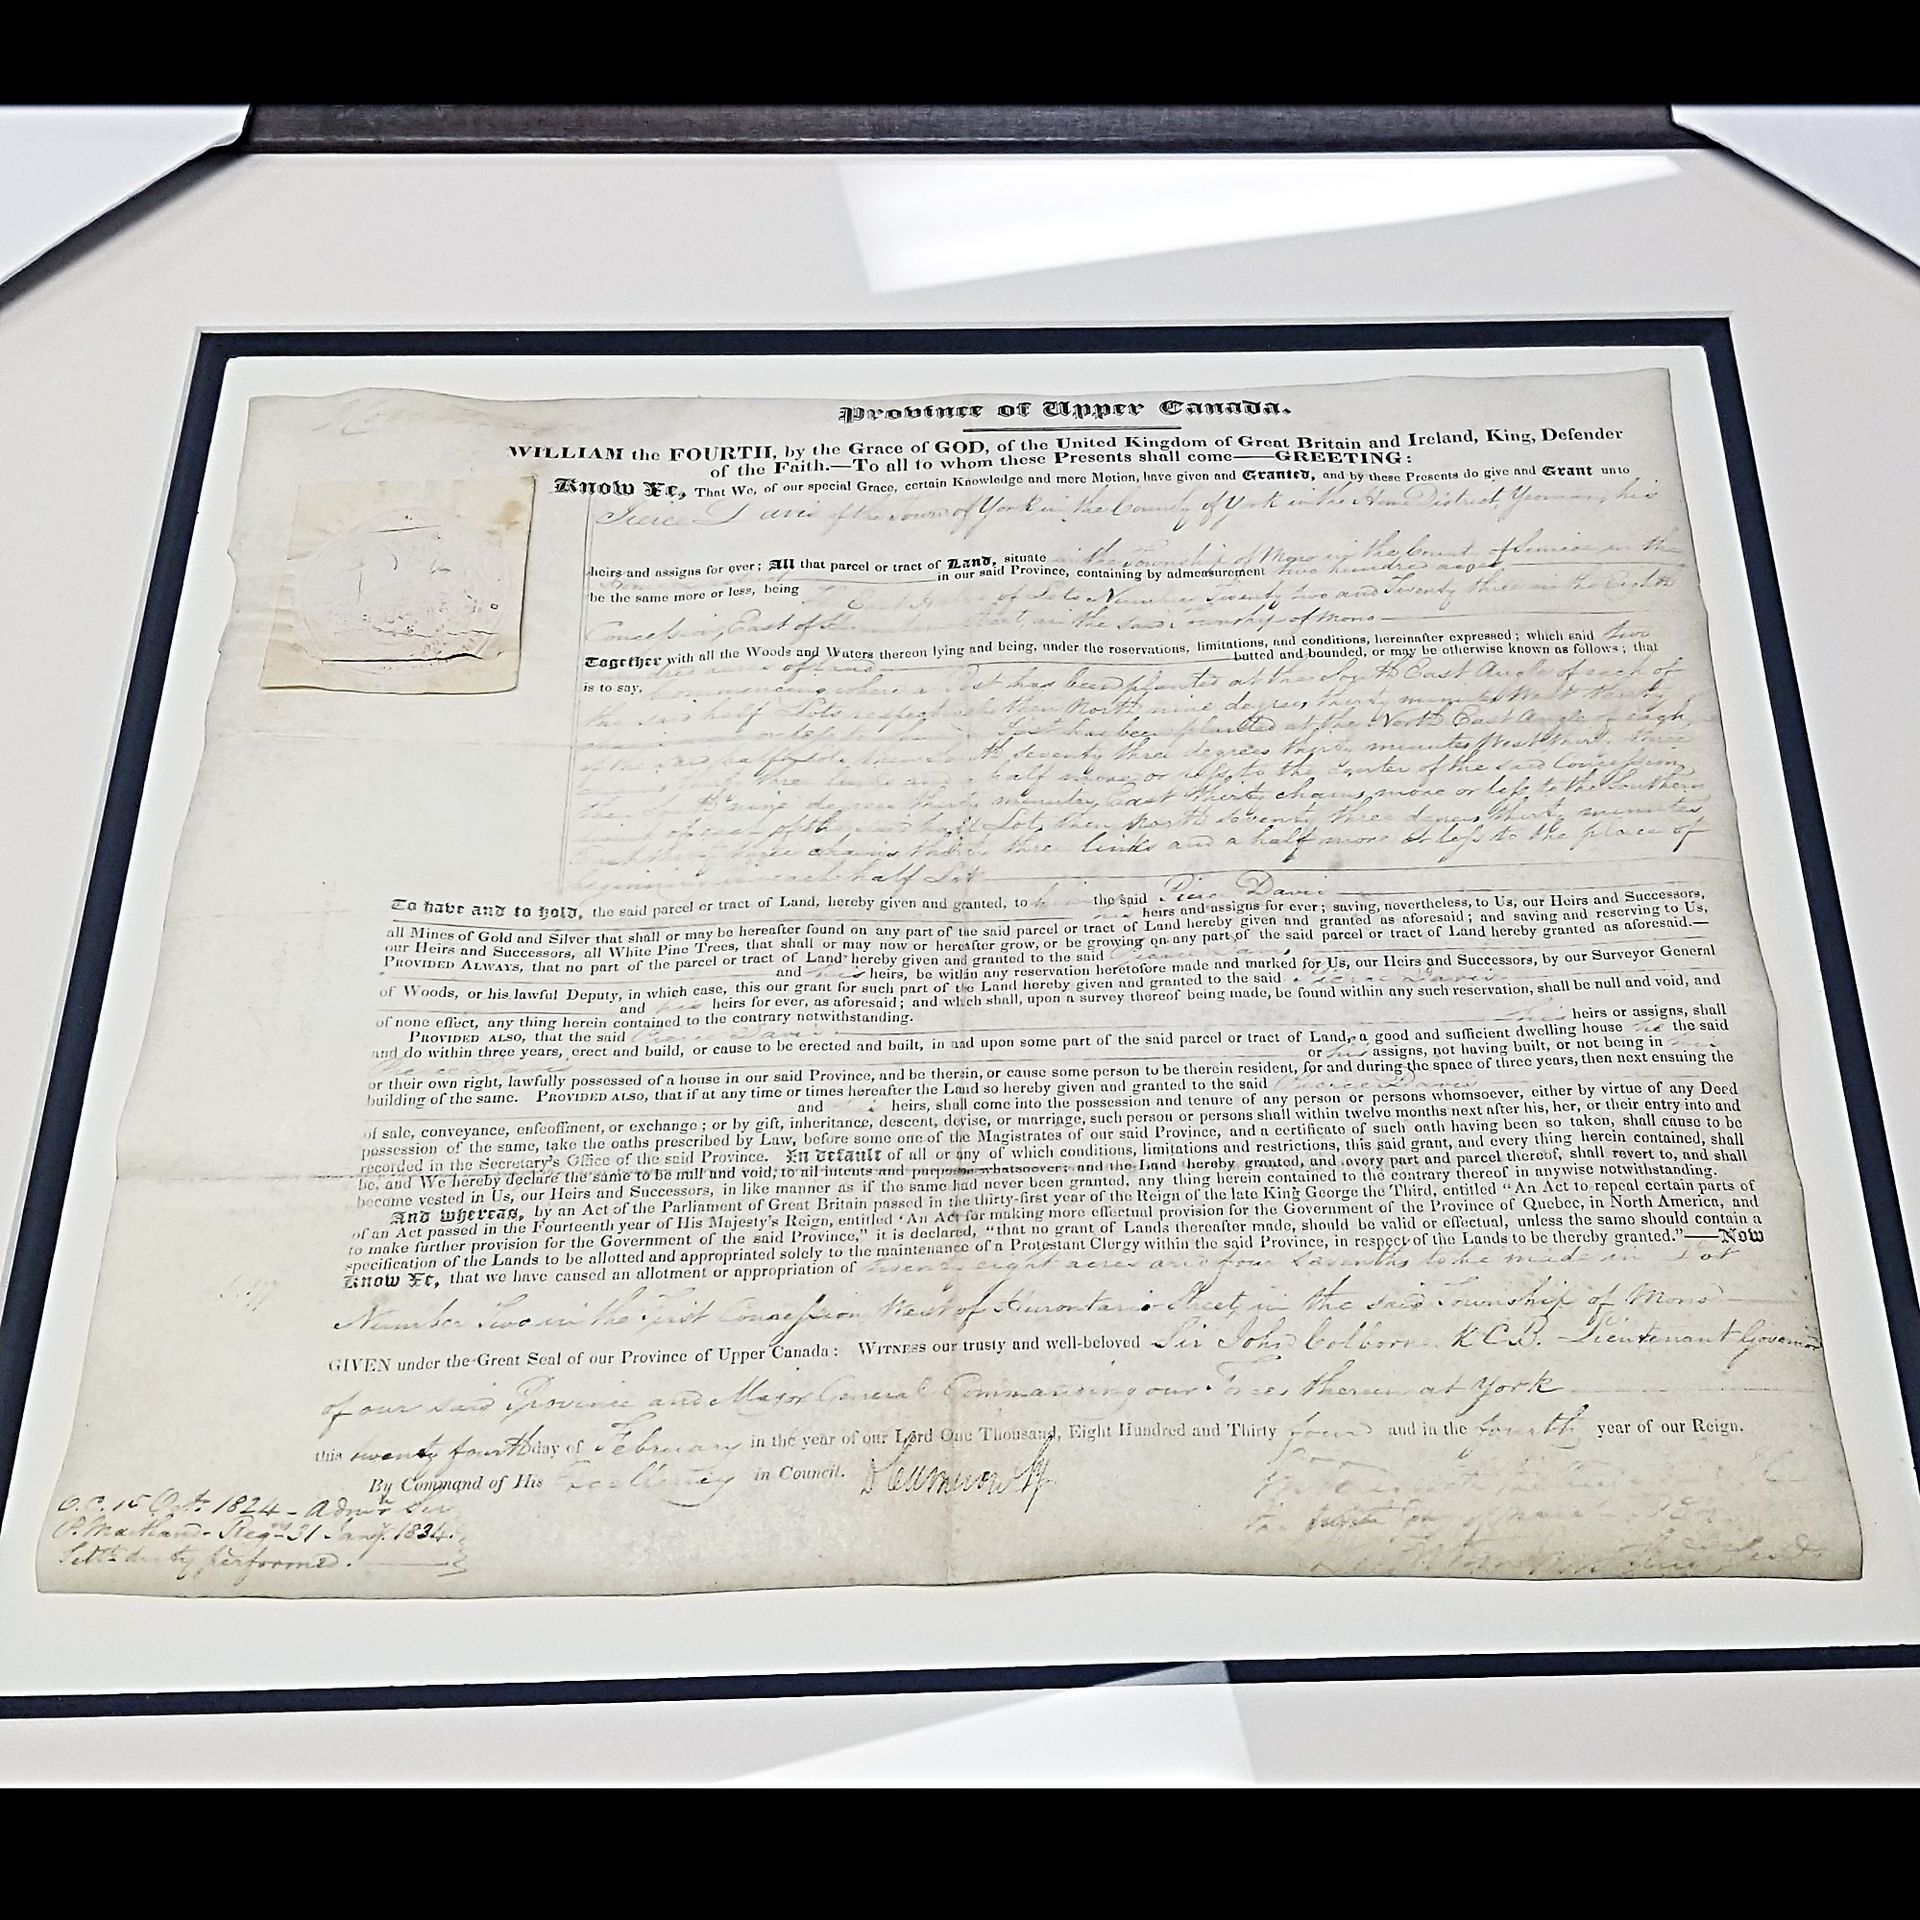 Province of Upper Canada.
WILLIAM the FOURTH, by the Grace of GOD, of the United Kingdom of Great Britain and Ireland, King, Defender
of the Faith.—To all to whom these Presents shall come——GREETING:
Know Ye, That We, of our special Grace, certain Knowledge and mere Motion, have given and Granted, and by these Presents do give and Grant unto
Pierce Davis of the Town of York in the County of York in the Home District, Yeoman, his
heirs and assigns for ever; All that parcel or tract of Land, situate in the Township of Mono in the County of Simcoe in the
in our said Province, containing by admeasurement two hundred acres
be the same more or less, being East Halves of Lots Number Twenty two and Twenty three in the Eighth
Concession, East of in the said Township of Mono
Together with all the Woods and Waters thereon lying and being, under the reservations, limitations, and conditions, hereinafter expressed; which said two
acres of land butted and bounded, or may be otherwise known as follows; that
is to say, Commencing where a Post has been planted at the South East Angle of each of
the said half Lots respectively then North nine degrees thirty minutes West thirty
chains more or less to where a Post has been planted at the North East Angle of each
of the said half Lots, then South seventy three degrees thirty minutes West thirty three
chains thirty three links and a half more or less to the center of the said Concession
then South nine degrees thirty minutes East thirty chains more or less to the Southern
limit of each of the said half Lots, then North seventy three degrees thirty minutes
East thirty three chains thirty three links and a half more or less to the place of
beginning in each half Lot
To have and to hold, the said parcel or tract of Land, hereby given and granted, to him the said Pierce Davis
his heirs and assigns for ever; saving, nevertheless, to Us, our Heirs and Successors,
all Mines of Gold and Silver that shall or may be hereafter found on any part of the said parcel or tract of Land hereby given and granted as aforesaid; and saving and reserving to Us,
our Heirs and Successors, all White Pine Trees, that shall or may now or hereafter grow, or be growing on any part of the said parcel or tract of Land hereby granted as aforesaid.—
PROVIDED ALWAYS, that no part of the parcel or tract of Land hereby given and granted to the said Pierce Davis
and his heirs, be within any reservation heretofore made and marked for Us, our Heirs and Successors, by our Surveyor General
of Woods, or his lawful Deputy, in which case, this our grant for such part of the Land hereby given and granted to the said Pierce Davis
and his heirs for ever, as aforesaid; and which shall, upon a survey thereof being made, be found within any such reservation, shall be null and void, and
of none effect, any thing herein contained to the contrary notwithstanding.
PROVIDED ALSO, that the said Pierce Davis his heirs or assigns, shall
and do within three years, erect and build, or cause to be erected and built, in and upon some part of the said parcel or tract of Land, a good and sufficient dwelling house he the said
Pierce Davis or his assigns, not having built, or not being in his
or their own right, lawfully possessed of a house in our said Province, and be therein, or cause some person to be therein resident, for and during the space of three years, then next ensuing the
building of the same. PROVIDED ALSO, that if at any time or times hereafter the Land so hereby given and granted to the said Pierce Davis
and his heirs, shall come into the possession and tenure of any person or persons whomsoever, either by virtue of any Deed
of sale, conveyance, enfeoffment, or exchange; or by gift, inheritance, descent, devise, or marriage, such person or persons shall within twelve months next after his, her, or their entry into and
possession of the same, take the oaths prescribed by Law, before some one of the Magistrates of our said Province, and a certificate of such oath having been so taken, shall cause to be
recorded in the Secretary's Office of the said Province. In default of all or any of which conditions, limitations and restrictions, this said grant, and every thing herein contained, shall
be, and We hereby declare the same to be null and void, to all intents and purposes whatsoever; and the Land hereby granted, and every part and parcel thereof, shall revert to, and shall
become vested in Us, our Heirs and Successors, in like manner as if the same had never been granted, any thing herein contained to the contrary thereof in anywise notwithstanding.
And whereas, by an Act of the Parliament of Great Britain passed in the thirty-first year of the Reign of the late King George the Third, entitled "An Act to repeal certain parts of
of an Act passed in the Fourteenth year of His Majesty's Reign, entitled 'An Act for making more effectual provision for the Government of the Province of Quebec, in North America, and
to make further provision for the Government of the said Province," it is declared, "that no grant of Lands thereafter made, should be valid or effectual, unless the same should contain a
specification of the Lands to be allotted and appropriated solely to the maintenance of a Protestant Clergy within the said Province, in respect of the Lands to be thereby granted."——Now
Know Ye, that we have caused an allotment or appropriation of twenty eight acres and four sevenths to be made in Lot
Number Two in the First Concession West of Hurontario Street, in the said Township of Mono
GIVEN under the Great Seal of our Province of Upper Canada: WITNESS our trusty and well-beloved Sir John Colborne K.C.B. Lieutenant Governor
of our said Province and Major General Commanding our Forces therein at York
this twenty fourth day of February in the year of our Lord One Thousand, Eight Hundred and Thirty four and in the fourth year of our Reign.
By Command of His Excellency in Council. D Cameron
O.C. 15 Octr. 1824 - Admr. Sir
P. Maitland - Regn. 31 Jany. 1834.
Settt. duty performed.